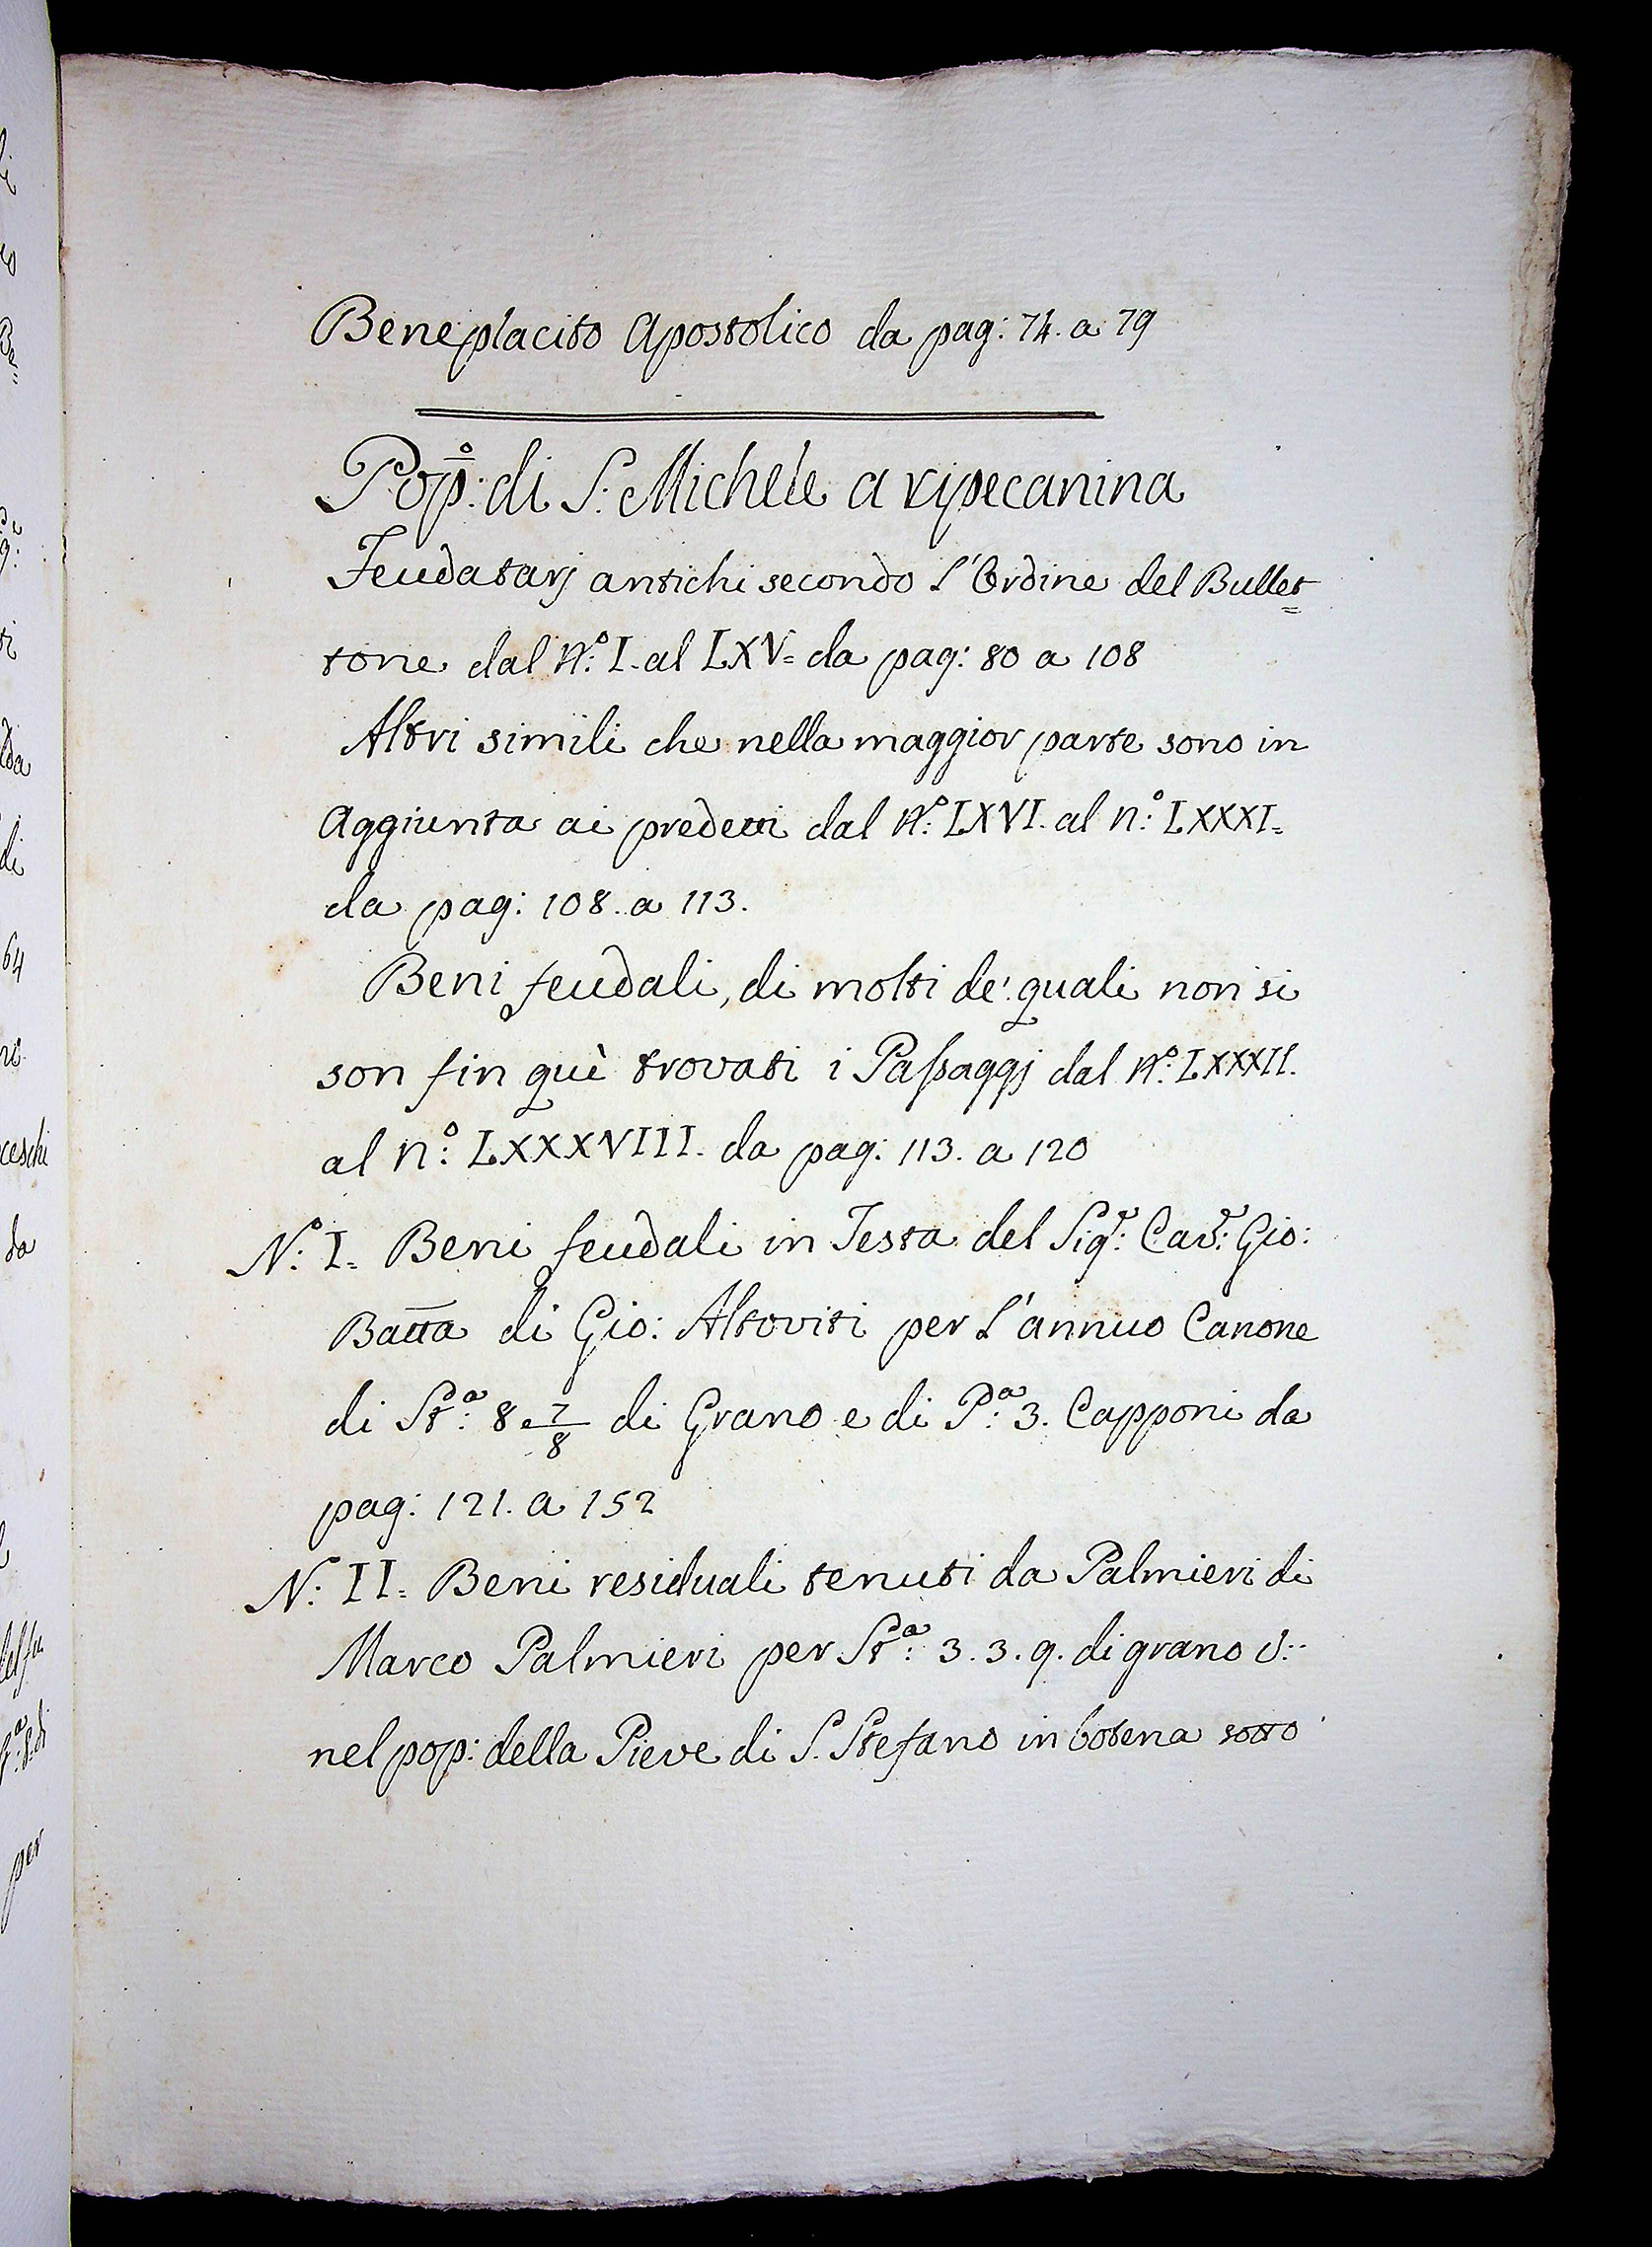 Beneplacito Apostolico da pag: 74. a 79
Pop:º di S: Michele a ripecanina
Feudatarj antichi secondo l'Ordine del Bullet=
tone dal N:º I. al LXV= da pag: 80 a 108
Altri simili che nella maggior parte sono in
Aggiunta ai predetti dal N:º LXVI. al n:º LXXXI=
da pag: 108. a 113.
Beni feudali, di molti de' quali non si
son fin quì trovati i Passaggj dal N:º LXXXII.
al n:º LXXXVIII. da pag: 113. a 120
N:º I= Beni feudali in Testa del Sig:r Cav:r Gio:
Batta di Gio: Altoviti per l'annuo Canone
di St:a 8 7/8 di Grano e di P:a 3. Capponi da
pag: 121. a 152
N: II= Beni residuali tenuti da Palmieri di
Marco Palmieri per St:a 3. 3. q. di grano
nel pop: della Pieve di S. Stefano in botena sotto
ceschi
da
64
di
per